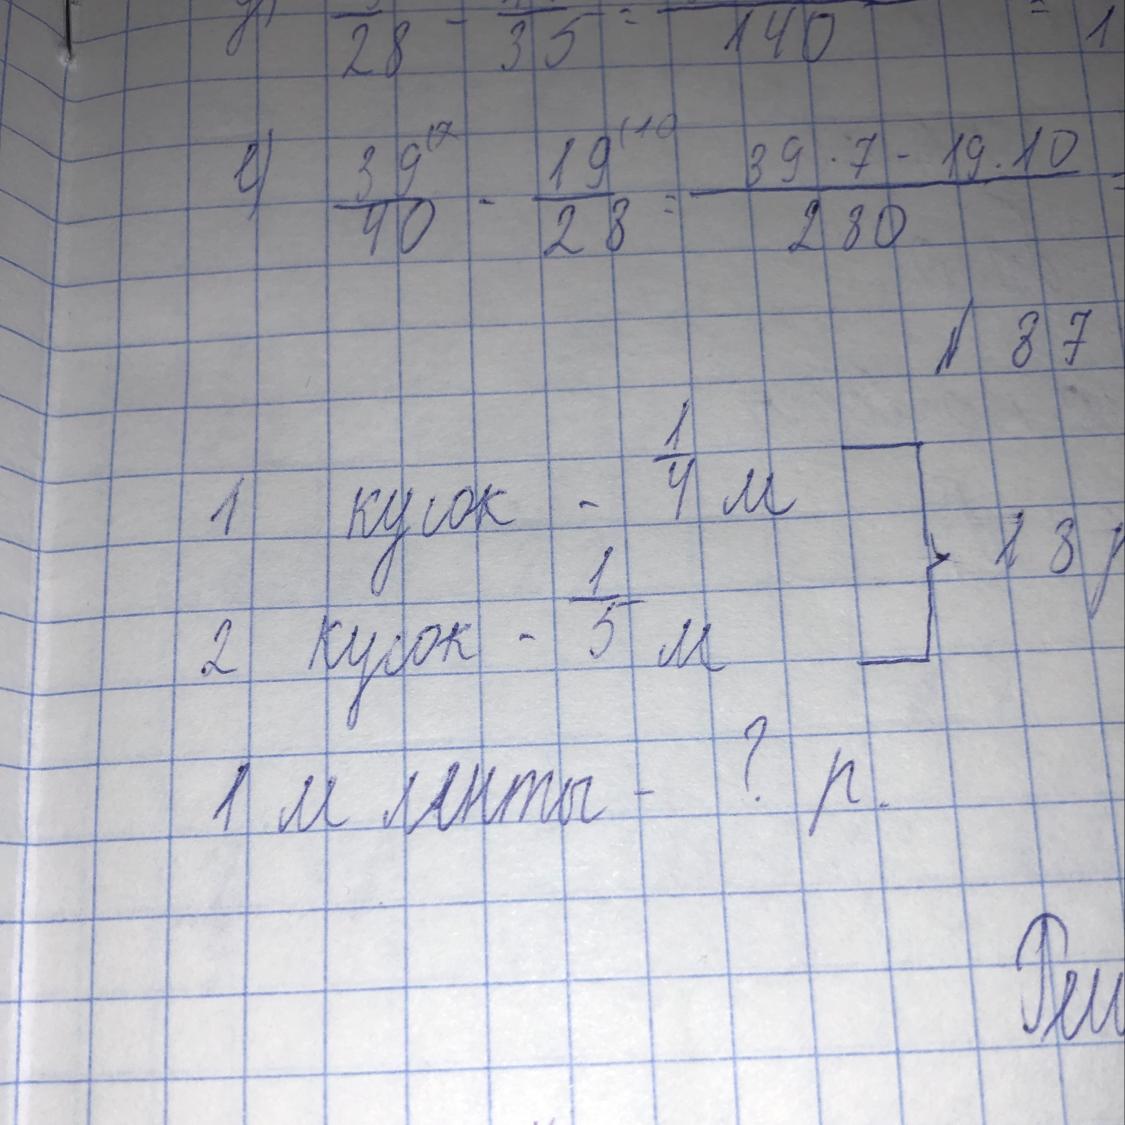 28 - 35 = 140 = 1
е) 39⁽⁷/40 - 19⁽¹⁰/28 = 39·7 - 19·10/280 =
№ 87
1 кусок - 1/4 м
18 р
2 кусок - 1/5 м
1 м ленты - ? р.
Реш